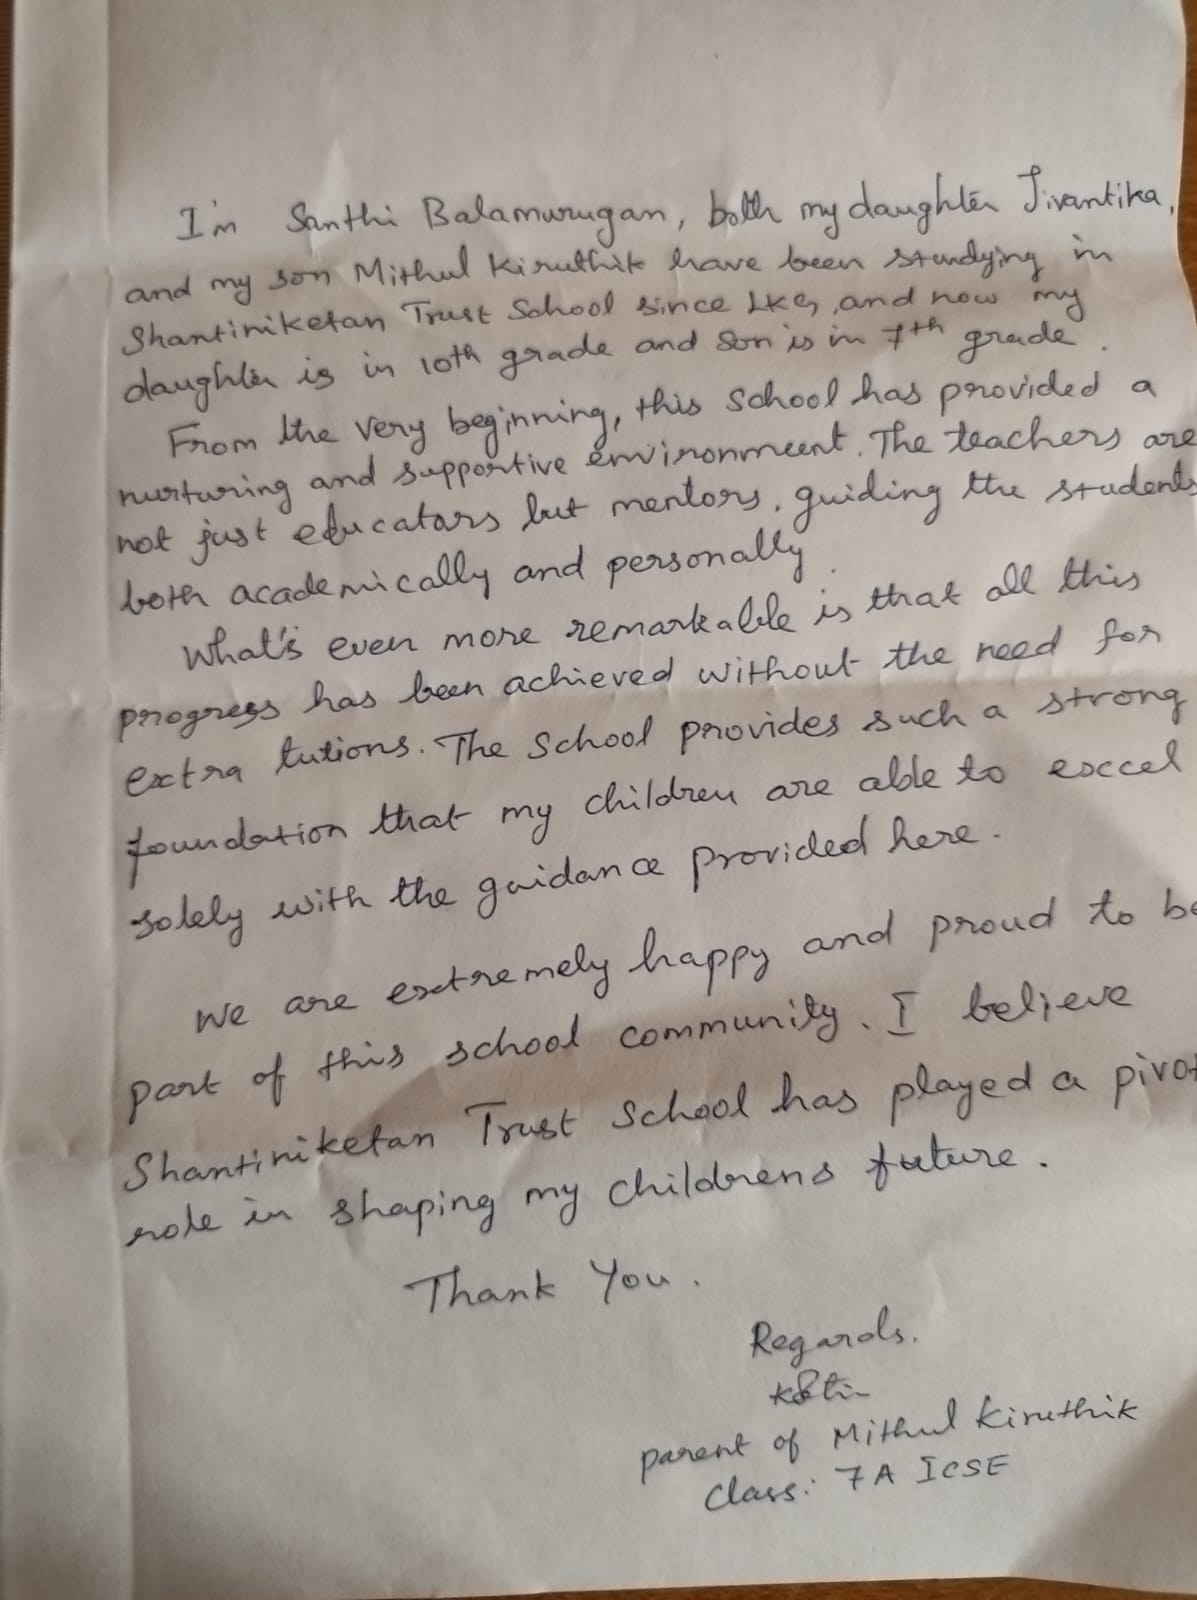 I'm Santhi Balamurugan, both my daughter Jivantika,
and my son Mithul Kiruthik have been studying in
Shantiniketan Trust School since LKG, and now my
daughter is in 10th grade and son is in 7th grade.
From the very beginning, this school has provided a
nurturing and supportive environment. The teachers are
not just educators but mentors, guiding the students
both academically and personally.
What's even more remarkable is that all this
progress has been achieved without the need for
extra tutions. The School provides such a strong
foundation that my children are able to excel
solely with the guidance provided here.
We are extremely happy and proud to be
part of this school community. I believe
Shantiniketan Trust School has played a pivot
role in shaping my childrens future.
Thank You.
Regards.
parent of Mithul Kiruthik
Class: 7A ICSE